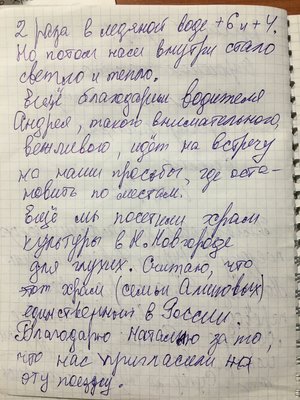 2 раза в ледяной воде +6 и +4.
Но потом нам внутри стало
светло и тепло.
Ещё благодарим водителя
Андрея, такого внимательного,
вежливого, идёт на встречу
на наши просьбы, где оста-
новить по местам.
Ещё мы посетили храм
культуры в Н. Новгороде
для глухих. Считаю, что
этот храм (семьи Алиповых)
единственный в России.
Благодарю Наталью за то,
что нас пригласили на
эту поездку.